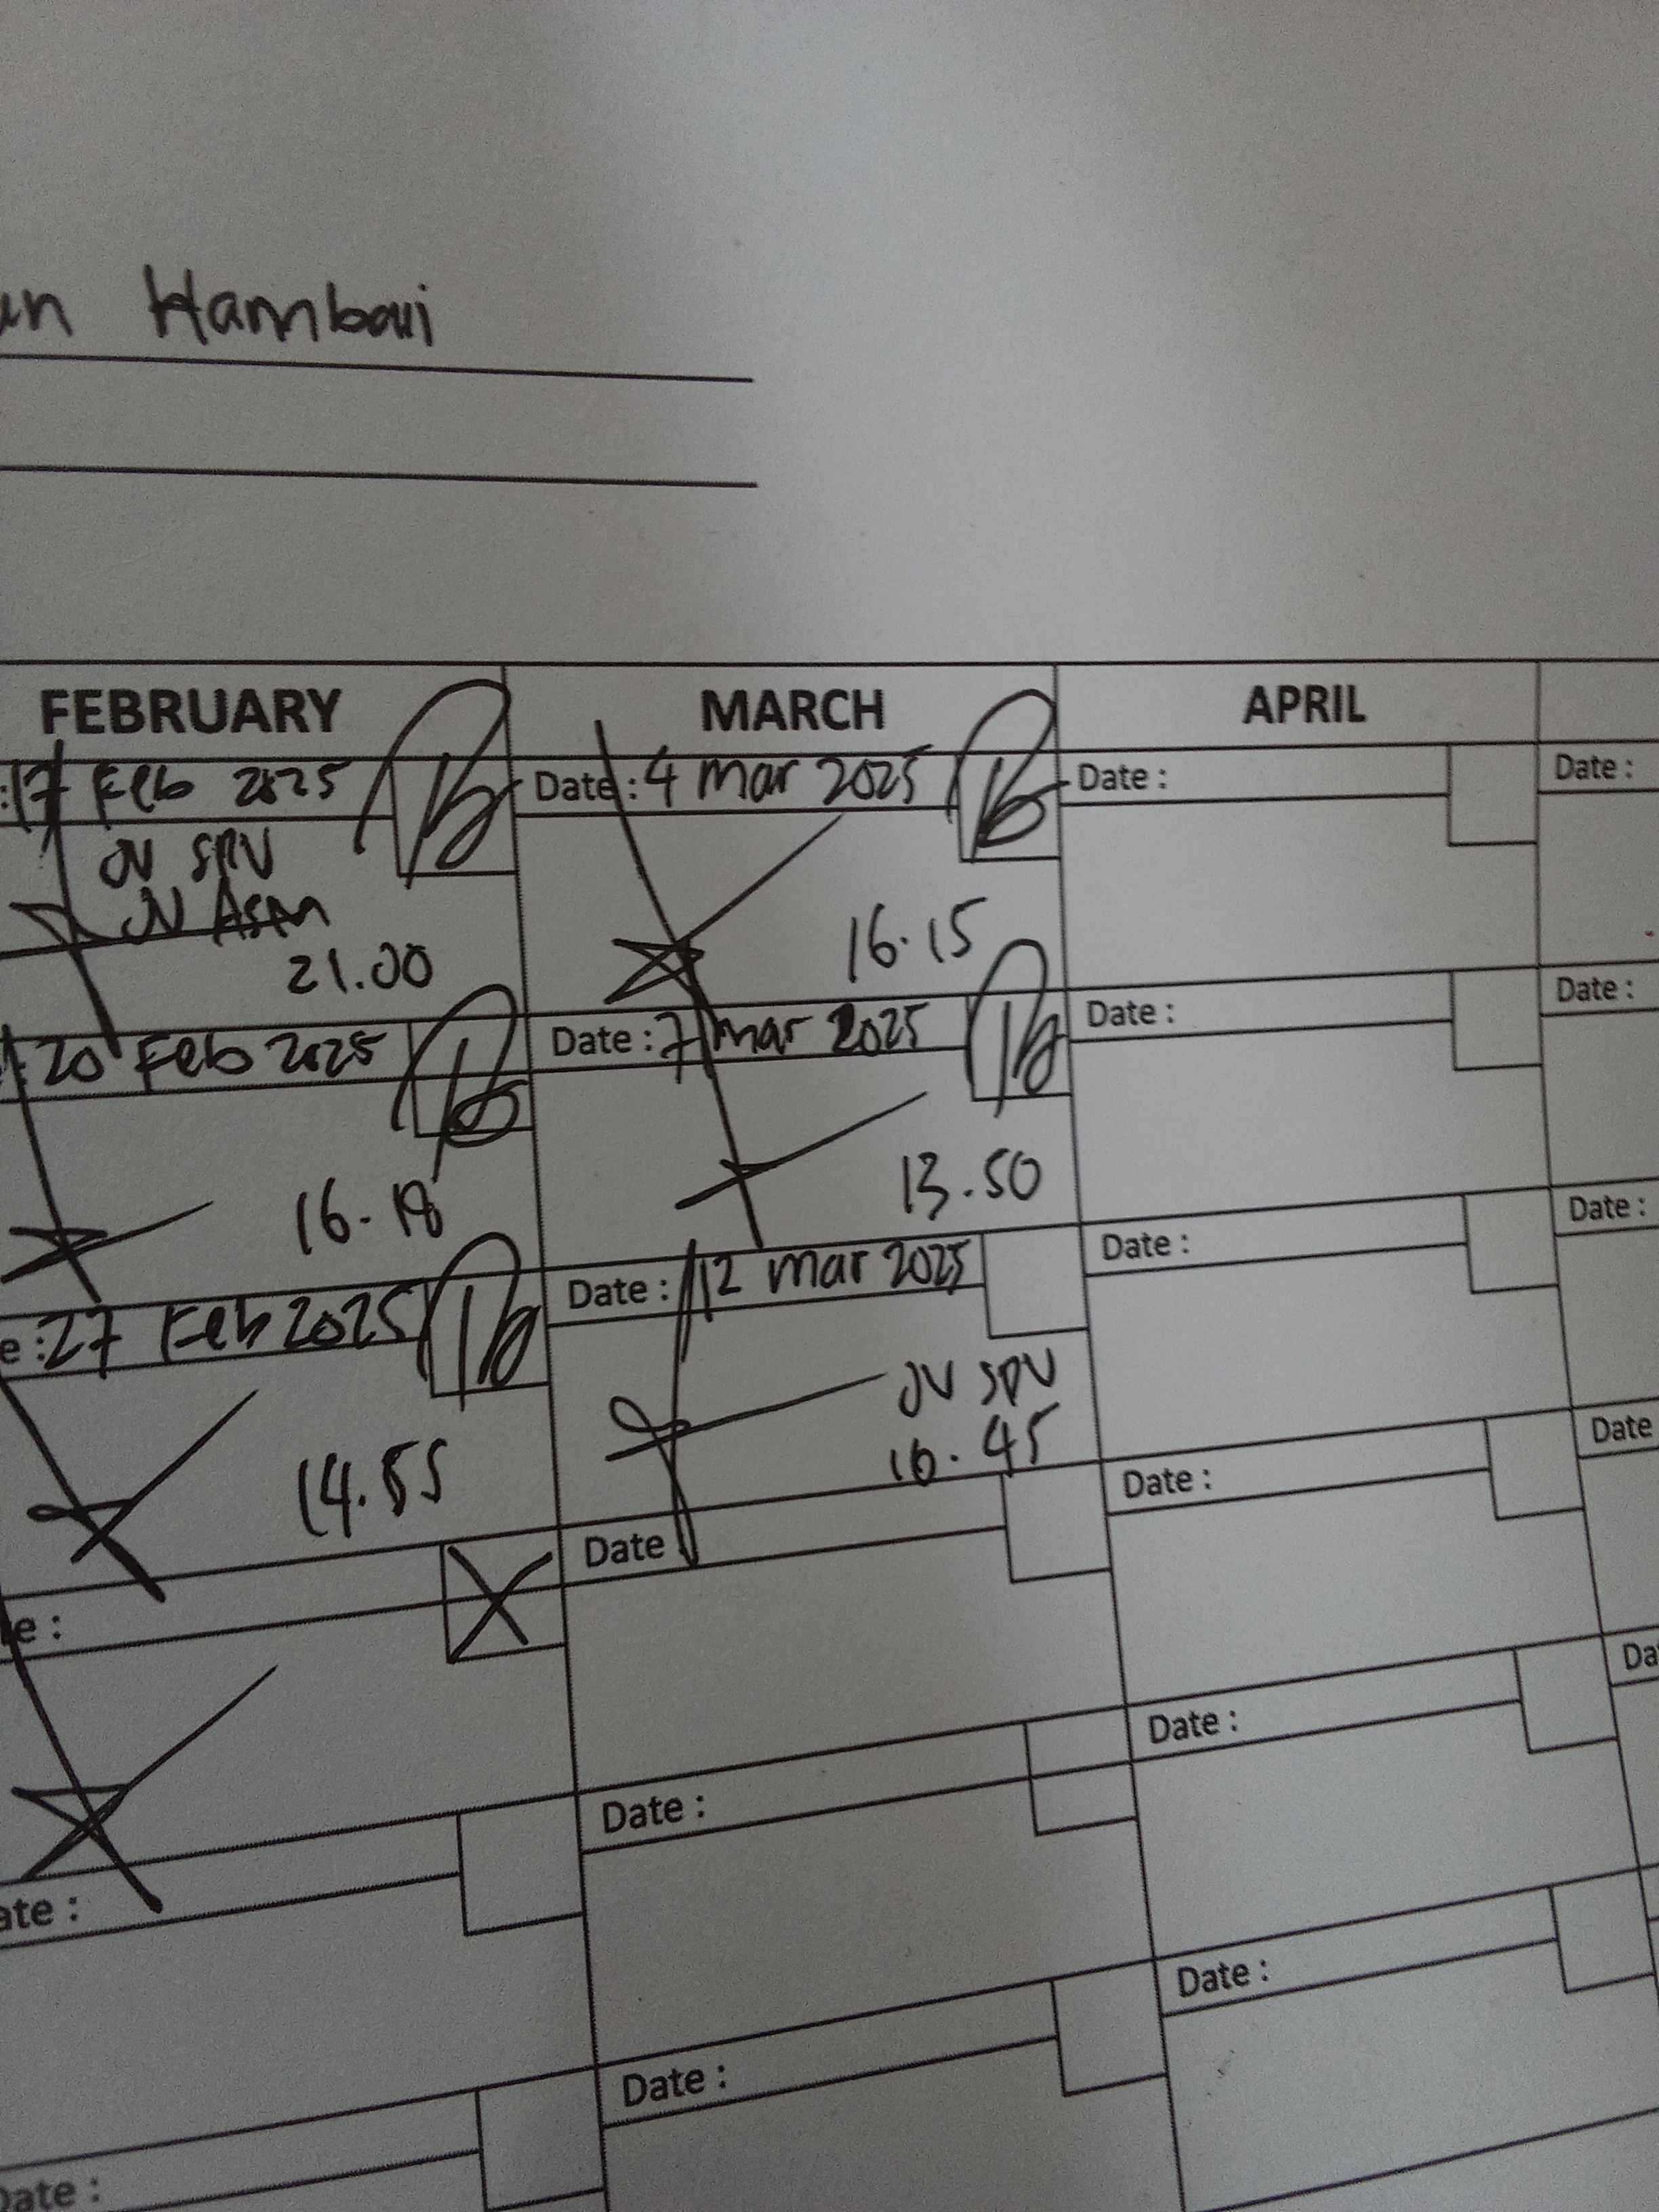 Hambali
FEBRUARY MARCH APRIL
:17 Feb 2025 Date : 4 Mar 2025 Date : Date :
JV SPV
JV ASM
21.00 16.15
20 Feb 2025 Date : 7 Mar 2025 Date : Date :
16.18 13.50
e :27 Feb 2025 Date : 12 Mar 2025 Date : Date :
JV SPV
14.55 16.45
te : Date Date : Date
ate : Date : Date : Da
Date : Date : Date :